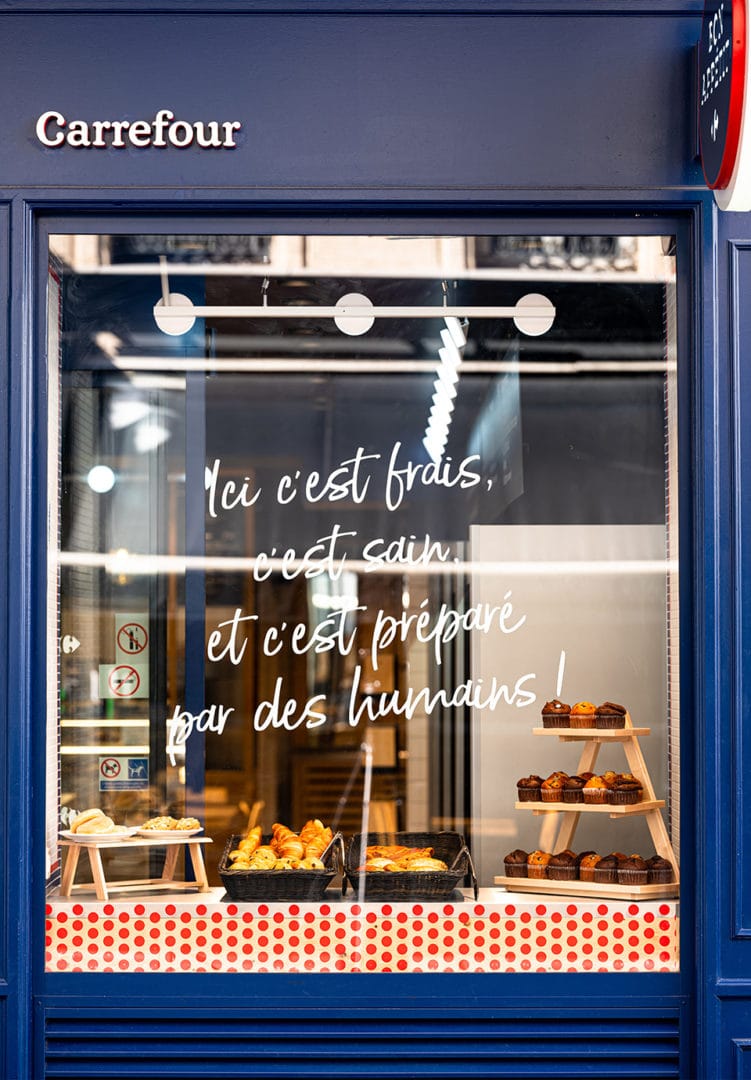 BON
APPÉTIT
Carrefour
Ici c'est frais,
c'est sain,
et c'est préparé
par des humains !